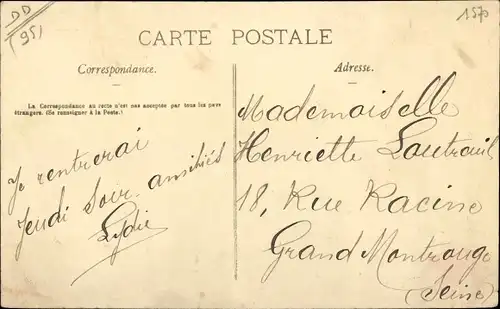 DD
(95)
1570
CARTE POSTALE
Correspondance.
La Correspondance au recto n'est pas acceptée par tous les pays
étrangers. (Se renseigner à la Poste.)
Je rentrerai
Jeudi Soir. amitiés
Lydie
Adresse.
Mademoiselle
Henriette Lautreuil
18, Rue Racine
Grand Montrouge
(Seine)